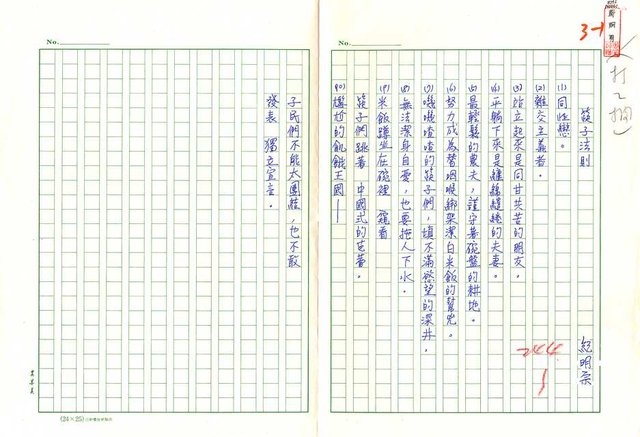 筷子法則
紀明宗
(1) 同性戀。
(2) 雜交主義者。
(3) 站立起來是同甘共苦的朋友，
(4) 平躺下來是纏綿繾綣的夫妻。
(5) 最輕鬆的農夫，謹守著碗盤的耕地。
(6) 努力成為替咽喉綁架潔白米飯的幫兇。
(7) 嘰嘰喳喳的筷子們，填不滿慾望的深井。
(8) 無法潔身自愛，也要拖人下水。
(9) 米飯蹲坐在碗裡 窺看
筷子們跳著 中國式的芭蕾。
(10) 尷尬的飢餓王國——
子民們不能太團結，也不敢
發表 獨立宣言。
No.
No.
3-1
打2欄
(24×25)